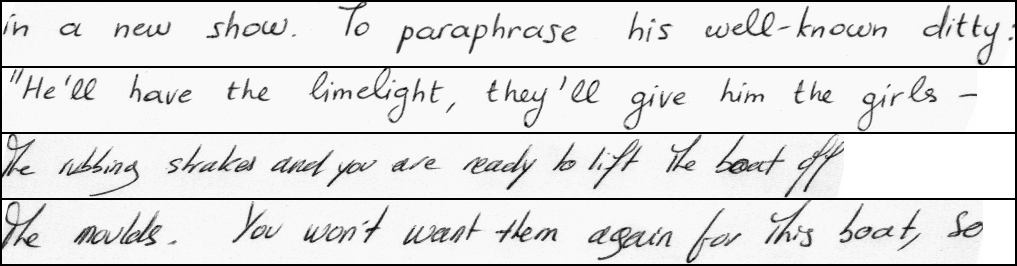 in a new show. To paraphrase his well-known ditty:
"He'll have the limelight, they'll give him the girls -
the rubbing strakes and you are ready to lift the boat off
the moulds. You won't want them again for this boat, so